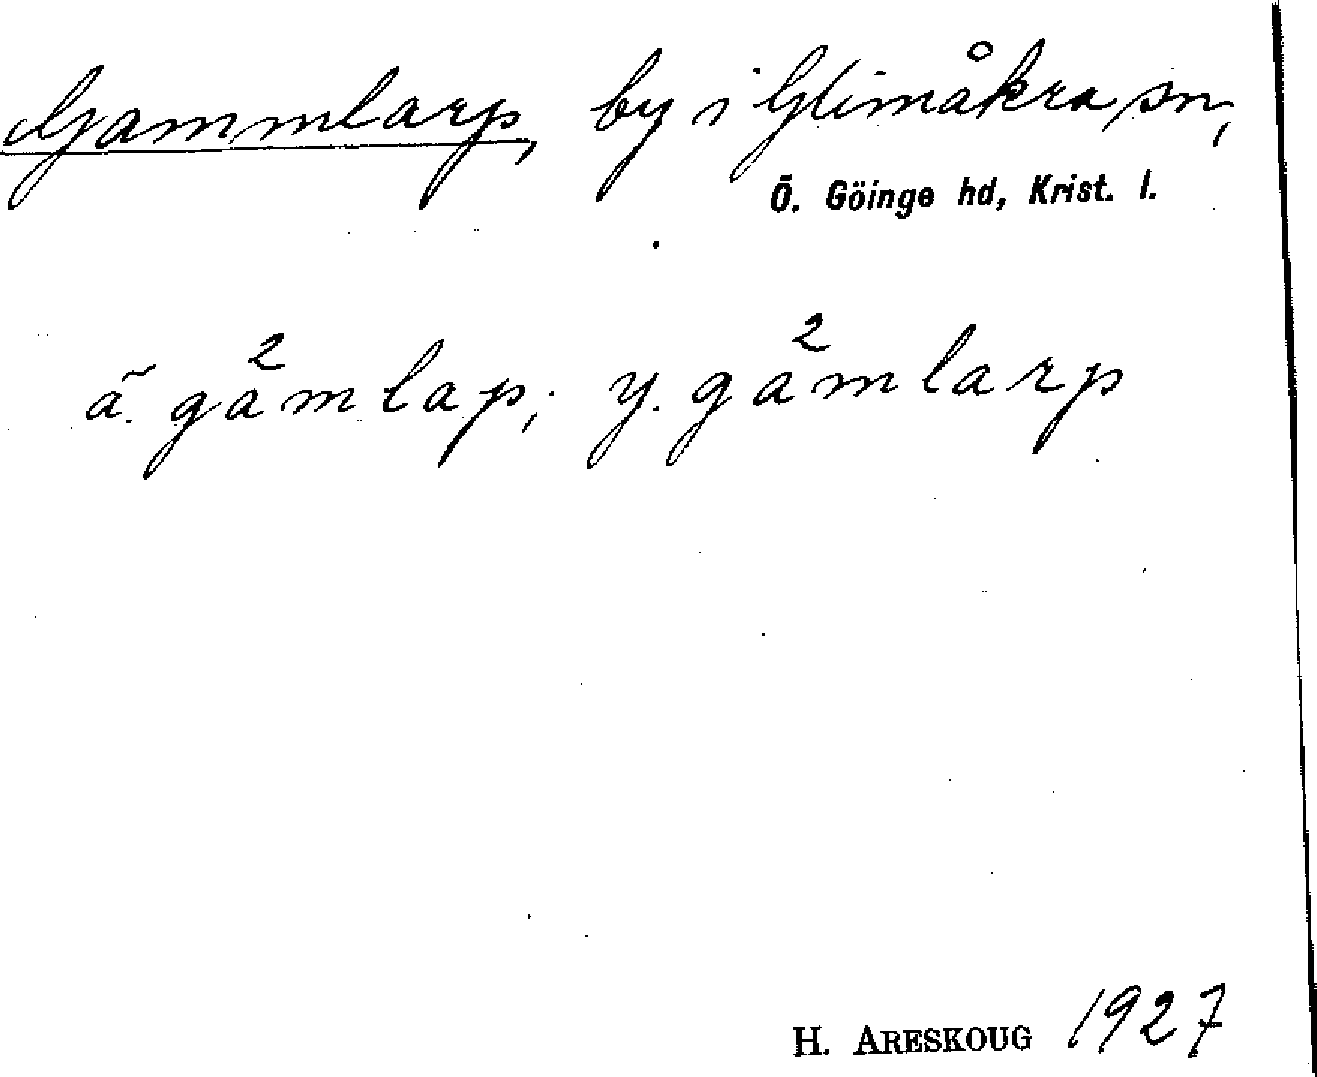 Gammlarp, by i Glimåkra sn,
Ö. Göinge hd, Krist. l.
ä. gå²mlap; y. gå²mlarp
H. ARESKOUG 1927